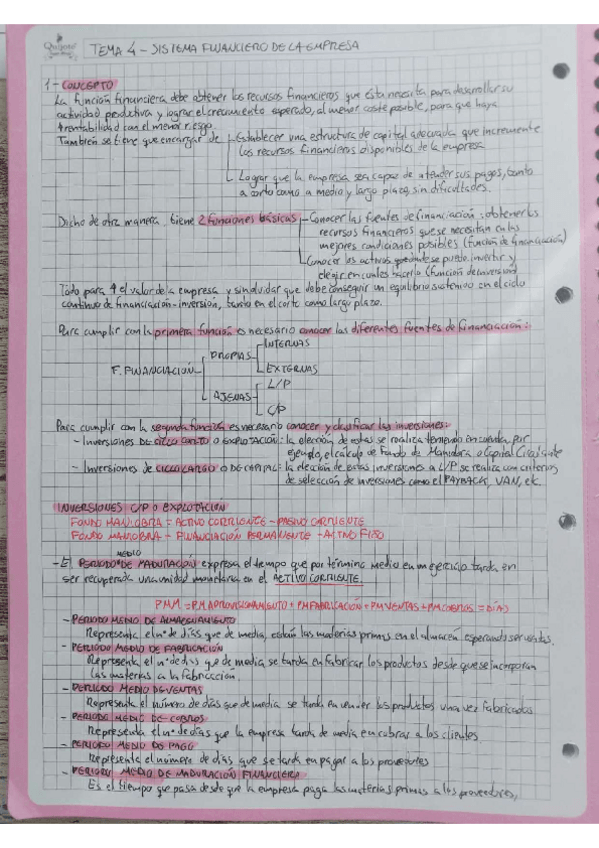 TEMA 4 - SISTEMA FINANCIERO DE LA EMPRESA
1 - CONCEPTO
La función financiera debe obtener los recursos financieros que esta necesita para desarrollar su
actividad productiva y lograr el crecimiento esperado, al menor coste posible, para que haya
↑rentabilidad con el menor riesgo.
También se tiene que encargar de
Establecer una estructura de capital adecuada que incremente
los recursos financieros disponibles de la empresa
Lograr que la empresa sea capaz de atender sus pagos, tanto
a corto como a medio y largo plazo, sin dificultades.
Dicho de otra manera tiene 2 funciones básicas
Conocer las fuentes de financiación: obtener los
recursos financieros que se necesitan en las
mejores condiciones posibles (función de financiación)
Conocer los activos que se puede invertir y
elegir en cuales hacerlo (función de inversión)
Todo para ↑ el valor de la empresa y sin olvidar que debe conseguir un equilibrio sostenido en el ciclo
continuo de financiación-inversión, tanto en el corto como largo plazo.
Para cumplir con la primera función es necesario conocer las diferentes fuentes de financiación:
F. FINANCIACIÓN
PROPIAS
INTERNAS
EXTERNAS
AJENAS
L/P
C/P
Para cumplir con la segunda función es necesario conocer y clasificar las inversiones:
- Inversiones DE CICLO CORTO O EXPLOTACIÓN: la elección de estas se realiza teniendo en cuenta, por
ejemplo, el cálculo de Fondo de Maniobra o Capital Circulante
- Inversiones de CICLO LARGO O DE CAPITAL: la elección de estas inversiones a L/P se realiza con criterios
de selección de inversiones como el PAYBACK, VAN, etc.
INVERSIONES C/P O EXPLOTACIÓN
FONDO MANIOBRA = ACTIVO CORRIENTE - PASIVO CORRIENTE
FONDO MANIOBRA = FINANCIACIÓN PERMANENTE - ACTIVO FIJO
MEDIO
- El PERIODO DE MADURACIÓN expresa el tiempo que por término medio en un ejercicio tarda en
ser recuperada una unidad monetaria en el ACTIVO CORRIENTE.
PMM = PM APROVISIONAMIENTO + PM FABRICACIÓN + PM VENTAS + PM COBROS = DÍAS
- PERIODO MEDIO DE ALMACENAMIENTO
Representa el nº de días que de media, están las materias primas en el almacén esperando ser usadas.
- PERIODO MEDIO DE FABRICACIÓN
Representa el nº de días que de media, se tarda en fabricar los productos desde que se incorporan
las materias a la fabricación.
- PERIODO MEDIO DE VENTAS
Representa el número de días que de media se tarda en vender los productos una vez fabricados.
- PERIODO MEDIO DE COBROS
Representa el nº de días que la empresa tarda de media en cobrar a los clientes.
- PERIODO MEDIO DE PAGO
Representa el número de días que se tarda en pagar a los proveedores
- PERIODO MEDIO DE MADURACIÓN FINANCIERA
Es el tiempo que pasa desde que la empresa paga las materias primas a los proveedores,